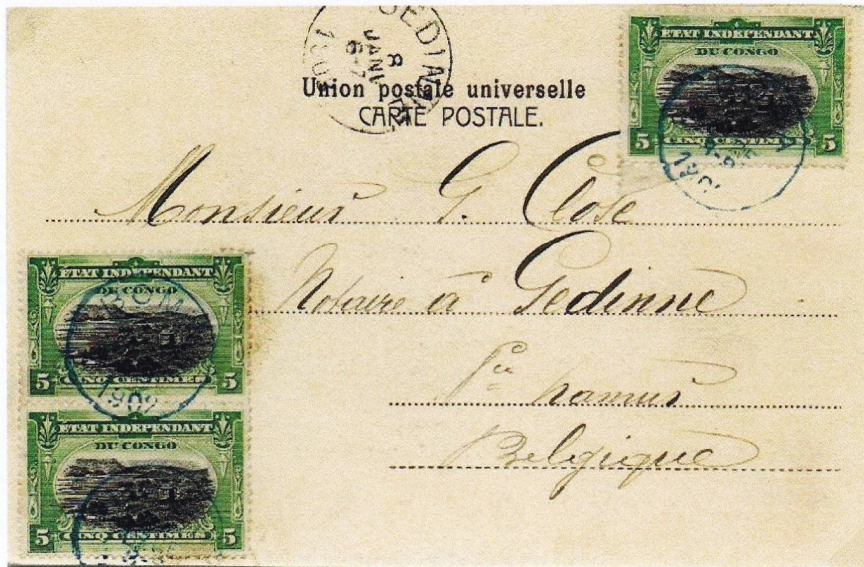 GEDINNE
8
JANV
6-7
Union postale universelle
CARTE POSTALE.
ETAT INDEPENDANT
DU CONGO
5 CINQ CENTIMES 5
Monsieur G. Close
Notaire à Gedinne
Pce namur
Belgique
ETAT INDEPENDANT
DU CONGO
BOMA
5 CINQ CENTIMES 5
1902
ETAT INDEPENDANT
DU CONGO
5 CINQ CENTIMES 5